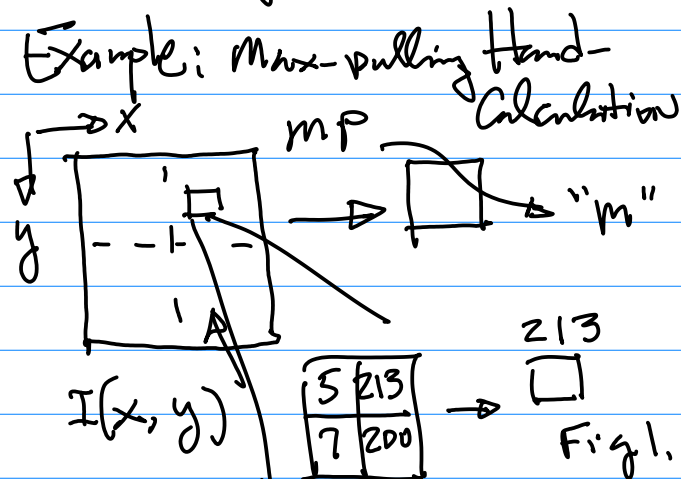 Example: Max-pulling Hand-
Calculation
x
MP
y
"m"
213
I(x, y)
5 213
7 200
Fig 1.